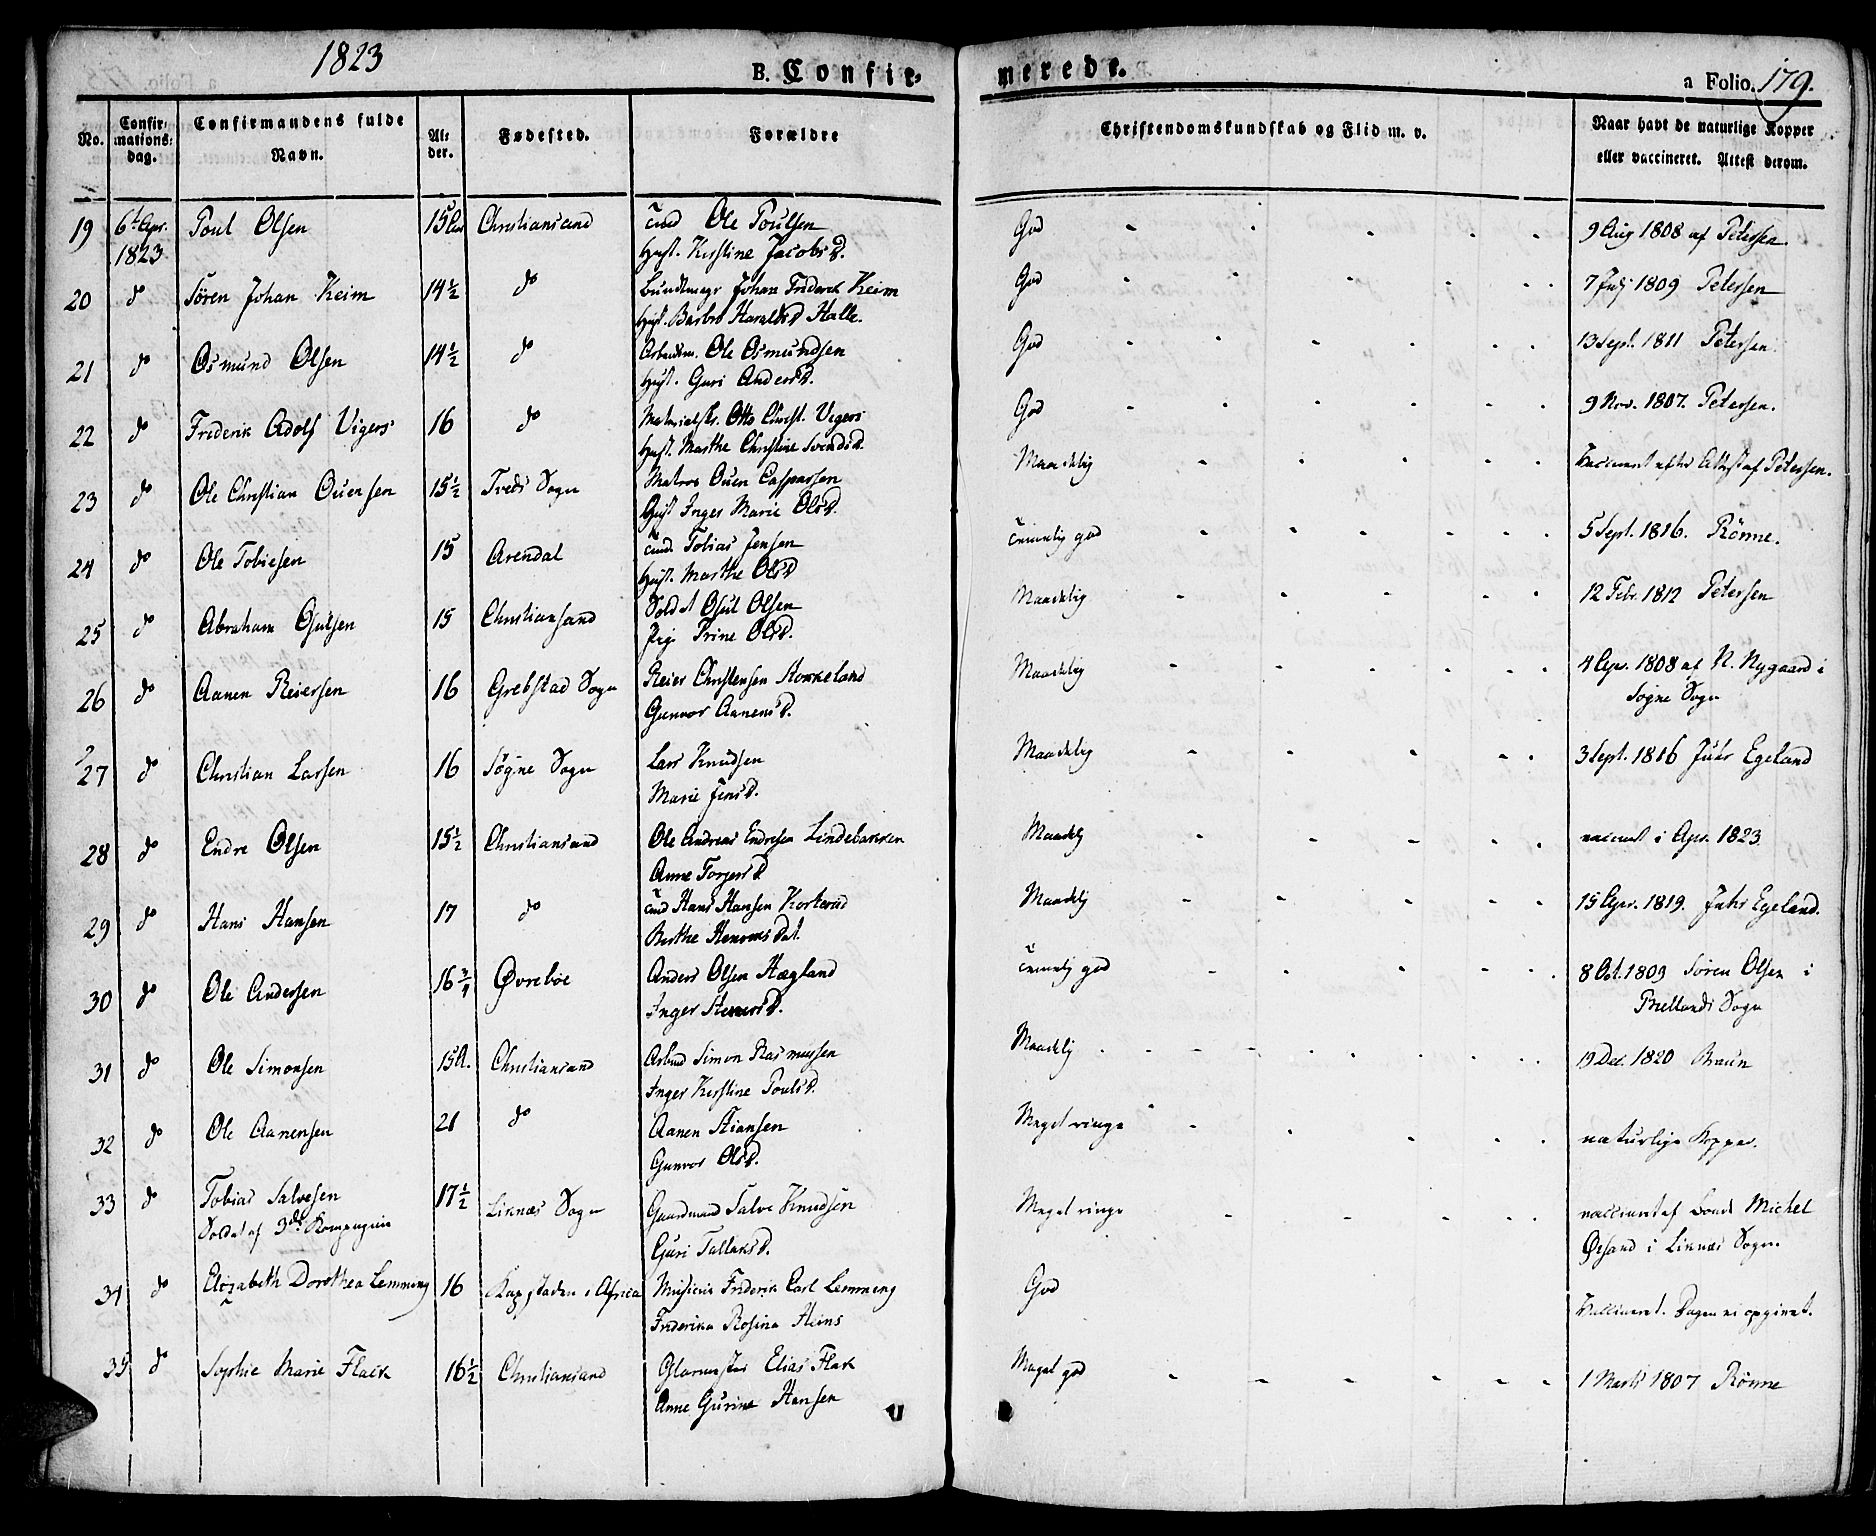 1823
B. Confir-
merede.
a Folio. 179.
No.
Confir-
mations-
dag.
Confirmandens fulde
Navn.
Al-
der.
Fødested.
Forældre
Christendomskundskab og Flid m. v.
Naar havt de naturlige Kopper
eller vaccineret. Attest derom.
19 6t Apr. Poul Olsen 15 Christiansand Ole Poulsen God 9 Aug 1808 af Petersen
1823 Hust. Kirstine JacobsD.
20 do Sören Johan Keim 14½ do Johan Friderik Keim God 7 Julj 1809 Petersen
Hust. Barbro HaraldsD Halle.
21 do Osmund Olsen 14½ do Arbeidsm. Ole Osmundsen God 13 Sept. 1811 Petersen.
Hust. Guri AndersD.
22 do Friderik Adolf Vigers 16 do Otto Christ. Vigers God 9 Nov. 1807. Petersen.
Hust. Marthe Christine SvendsD.
23 do Ole Christian Ouensen 15½ Treds Sogn Matros Ouen Caspersen Maadelig Vaccineret efter Attest af Petersen.
Hust Inger Marie OlsD.
24 do Ole Tobiesen 15 Arendal Tobias Jensen temmelig god 5 Sept. 1816. Rönne.
Hust. Marthe OlsD
25 do Abraham Osulsen 15 Christiansand Soldat Osul Olsen Maadelig 12 Febr. 1812 Petersen
Pige Trine OlsD.
26 do Aanen Reiersen 16 Grebstad Sogn Reier Christensen Maadelig 4 Apr. 1808 af N. Nygaard i
Gunvor AanensD. Sögne Sogn
27 do Christian Larsen 16 Søgne Sogn Lars Knudsen Maadelig 3 Sept. 1816 Juhr Egeland
Marie JensD.
28 do Endre Olsen 15½ Christiansand Ole Andreas Endresen Lindebakken Maadelig vaccinert i Apr. 1823.
Anne TorgersD
29 do Hans Hansen 17 do Hans Hansen Maadelig 15 Apr. 1819. Juhr Egeland.
Berthe
30 do Ole Andersen 16¾ Øvreböe Anders Olsen Hægland temmelig god 8 Oct. 1809 Sören Olsen i
Inger Sogn
31 do Ole Simonsen 15 A. Christiansand Arbeid Simon Rasmussen Maadelig 19 Dec. 1820 Braun
Inger Kirstine PoulsD.
32 do Ole Aanensen 21 do Aanen Stiansen Meget ringe naturlige Kopper.
Gunvor OlsD.
33 do Tobias Salvesen 17½ Liknæs Sogn Gaardmand Salve Knudsen Meget ringe vaccineret af Bonde Michel
Soldat af 3die Kompagnie Guri TallaksD. i Liknæs Sogn.
34 do Elizabeth Dorothea Lemming 16 Kapstaden i Africa Musicus Friderik Carl Lemming God Vaccineret. Dagen ei opgivet.
Friderika Rosina Heins
35 do Sophie Marie Flack 16½ Christiansand Glarmester Elias Flak Meget god 1 Marts 1807 Rönne
Anne Gurine Hansen